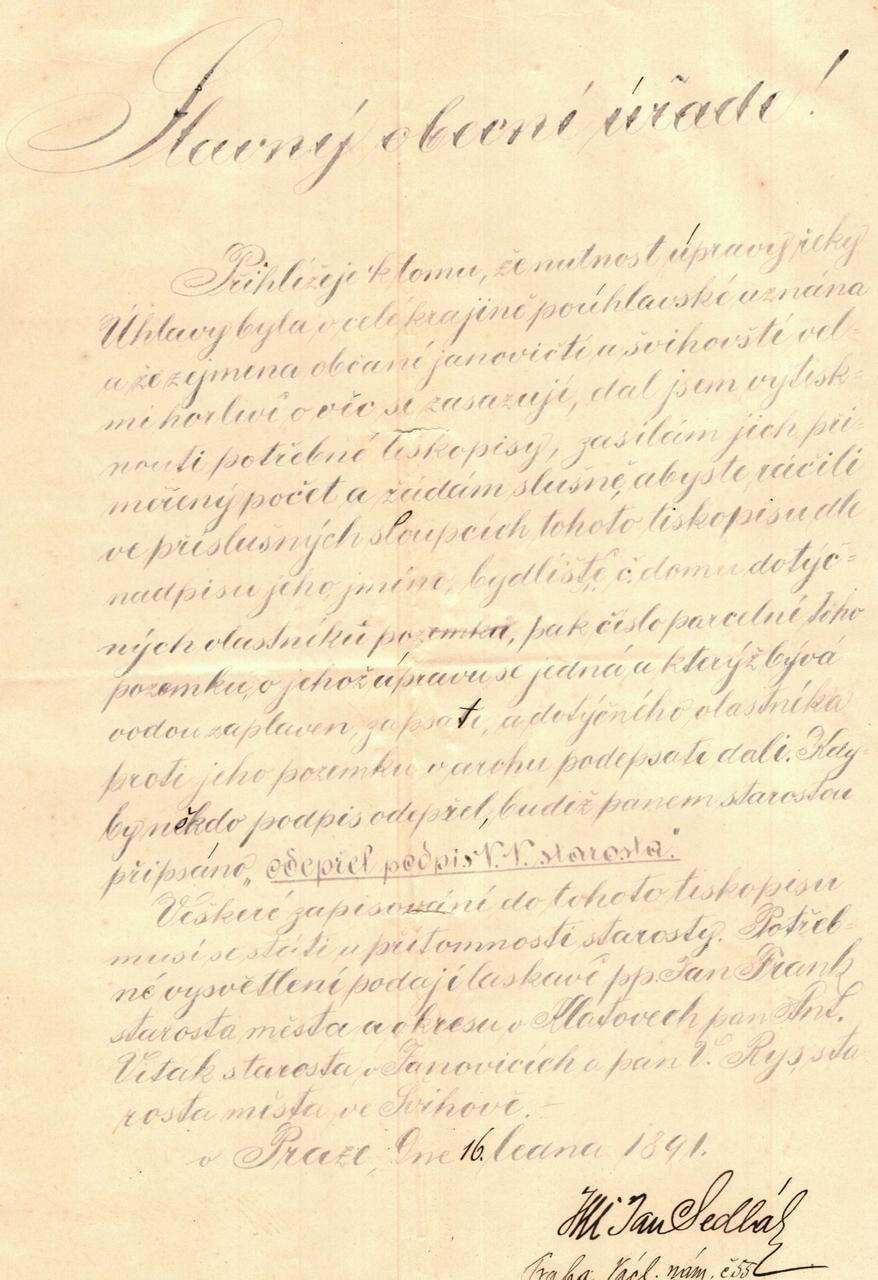 Slavný obecní úřade!
Přihlížeje k tomu, že nutnost úpravy řeky
Úhlavy byla v celé krajině poúhlavské uznána
a že zejmena občaní janovičtí a švihovští vel-
mi horlivě o věc se zasazují, dal jsem vytisk-
nouti potřebné tiskopisy, zasílám jich při-
měřený počet a žádám slušně, abyste ráčili
ve příslušných sloupcích tohoto tiskopisu dle
nadpisu jeho jméno, bydliště, č. domu dotyč-
ných vlastníků pozemků, pak číslo parcelní toho
pozemku, o jehož úpravu se jedná a kterýž bývá
vodou zaplaven, zapsati, a dotyčného vlastníka
proti jeho pozemku v archu podepsati dali. Kdy-
by někdo podpis odepřel, budiž panem starostou
připsáno „odepřel podpis N. N. starosta."
Veškeré zapisování do tohoto tiskopisu
musí se státi u přítomnosti starosty. Potřeb-
né vysvětlení podají laskavě pp. Jan Frank
starosta města a okresu v Klatovech pan Ant.
Viták starosta v Janovicích a pan V. Rys, sta
rosta města ve Švihově.
v Praze, dne 16. ledna 1891.
Jan Sedlák
Praha, Václ. nám. č 55